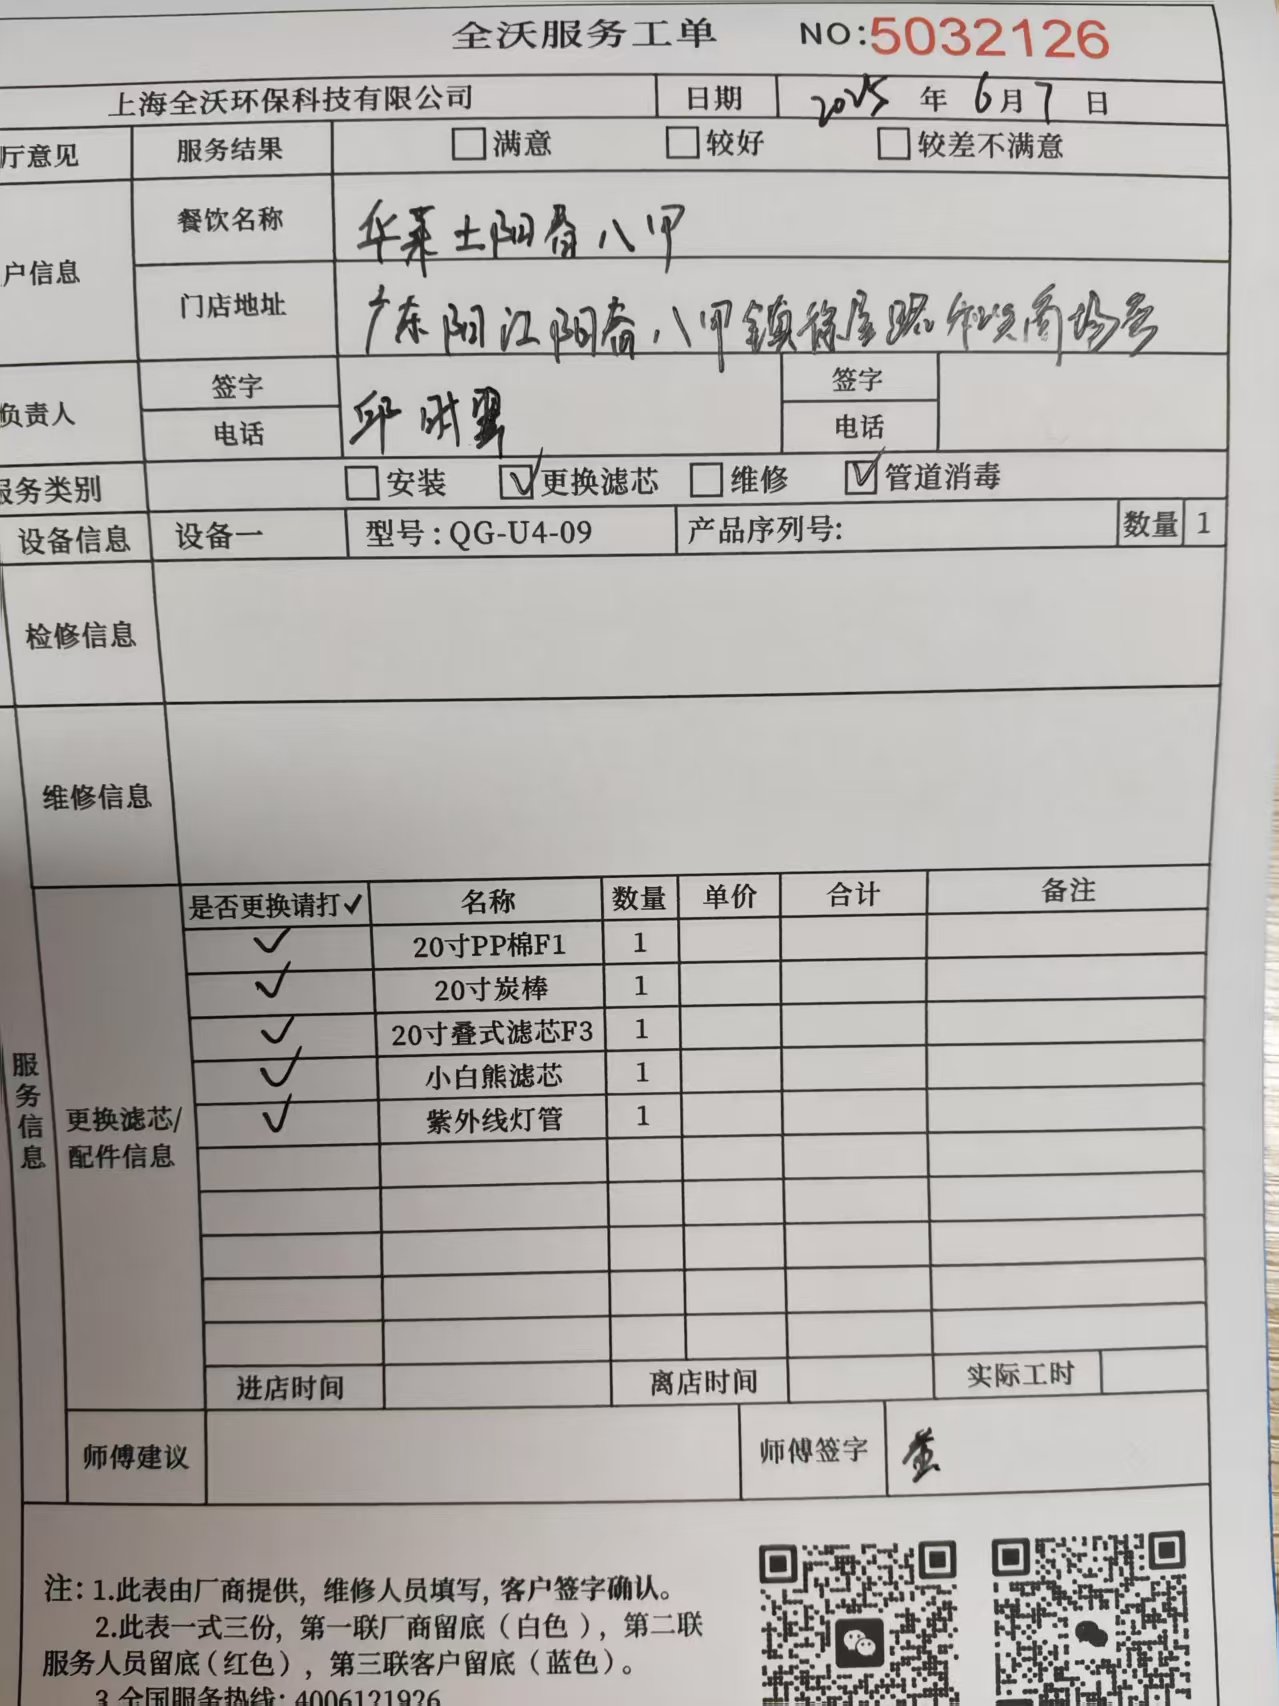 全沃服务工单 NO:5032126
上海全沃环保科技有限公司 日期 2025 年 6 月 7 日
厅意见 服务结果 满意 较好 较差不满意
户信息 餐饮名称 华莱士阳春八甲
门店地址 广东阳江阳春八甲镇 商场
负责人 签字 邱 签字
电话 电话
服务类别 安装 ✓更换滤芯 维修 ✓管道消毒
设备信息 设备一 型号:QG-U4-09 产品序列号: 数量 1
检修信息
维修信息
服务信息
更换滤芯/
配件信息
是否更换请打✓ 名称 数量 单价 合计 备注
✓ 20寸PP棉F1 1
✓ 20寸炭棒 1
✓ 20寸叠式滤芯F3 1
✓ 小白熊滤芯 1
✓ 紫外线灯管 1
进店时间 离店时间 实际工时
师傅建议 师傅签字 黄
注: 1.此表由厂商提供, 维修人员填写, 客户签字确认。
2.此表一式三份, 第一联厂商留底(白色), 第二联
服务人员留底(红色), 第三联客户留底(蓝色)。
3.全国服务热线: 4006121926